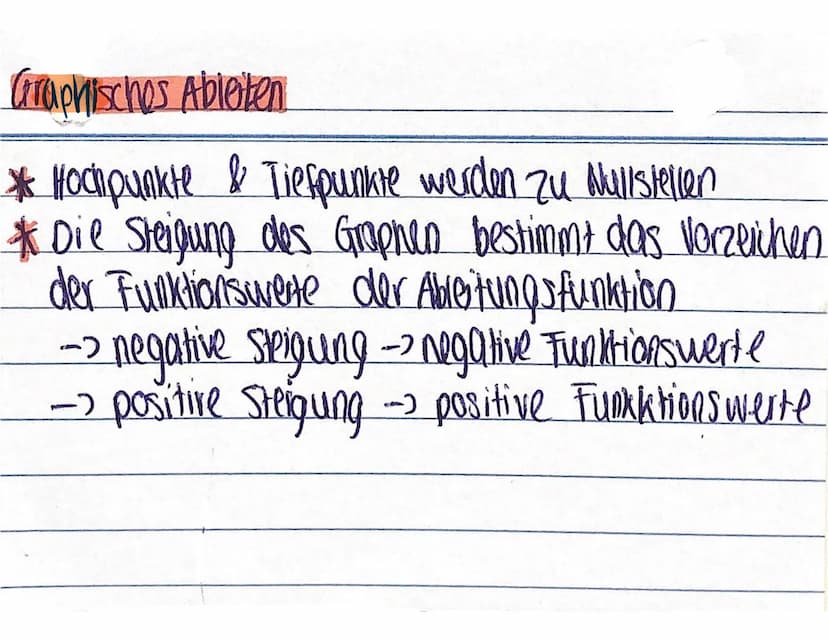 Graphisches Ableiten
* Hochpunkte & Tiefpunkte werden zu Nullstellen
* Die Steigung des Graphen bestimmt das Vorzeichen
der Funktionswerte der Ableitungsfunktion
-> negative Steigung -> negative Funktionswerte
-> positive Steigung -> positive Funkktionswerte